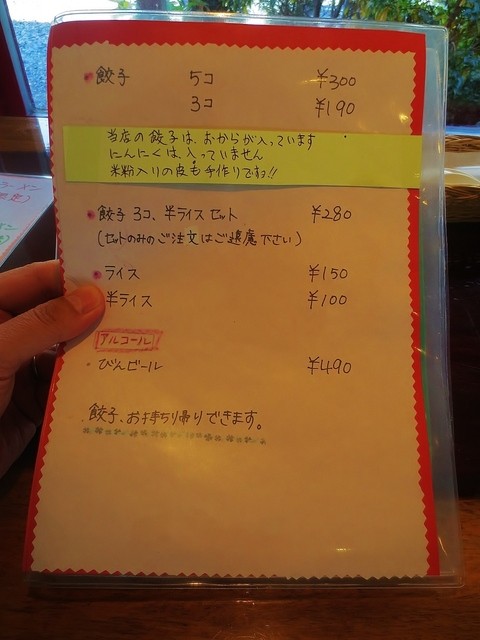 餃子 5コ ¥300
3コ ¥190
当店の餃子は、おからが入っています
にんにくは入っていません
米粉入りの皮も手作りです!!
餃子3コ、半ライスセット ¥280
(セットのみのご注文はご遠慮下さい)
ライス ¥150
半ライス ¥100
アルコール
びんビール ¥490
餃子、お持ち帰りできます。